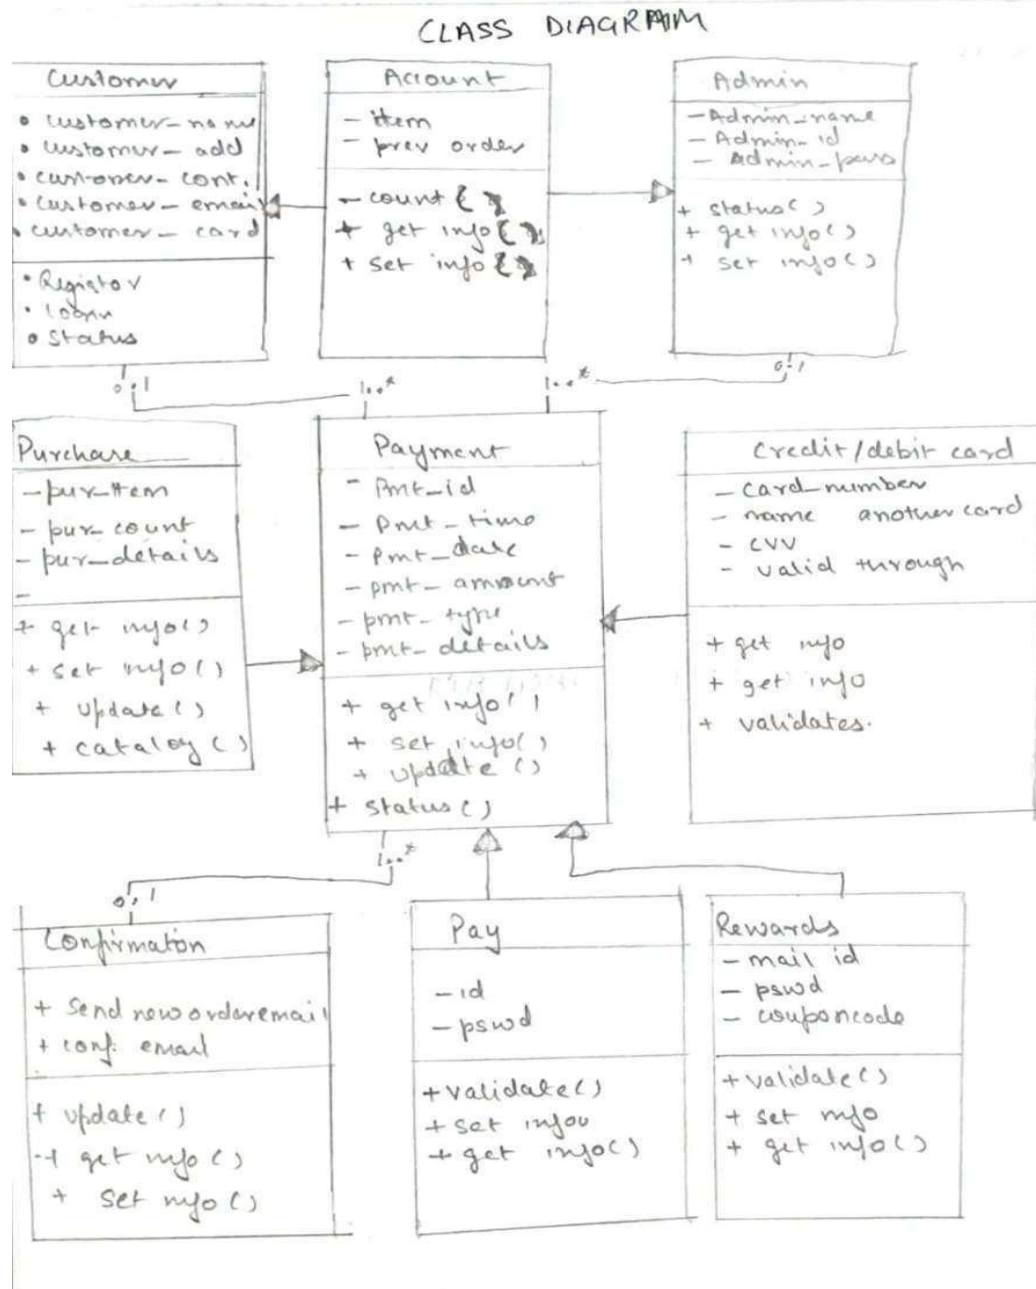 CLASS DIAGRAM
Customer
• customer_name
• customer_add
• customer_cont.
• customer_email
• customer_card
• Register
• Login
• Status
Account
- item
- prev order
- count { }
+ get info { }
+ set info { }
Admin
- Admin_name
- Admin_id
- Admin_pass
+ status()
+ get info()
+ set info()
0..1
1..*
1..*
0..1
Purchase
- pur_item
- pur_count
- pur_details
-
+ get info()
+ set info()
+ update()
+ catalog()
Payment
- Pmt_id
- Pmt_time
- Pmt_date
- pmt_amount
- pmt_type
- pmt_details
+ get info()
+ set info()
+ update()
+ status()
Credit/debit card
- card_number
- name anothercard
- cvv
- valid through
+ get info
+ get info
+ validates.
1..*
0..1
Confirmaton
+ Send neworderemail
+ conf. email
+ update()
+ get info()
+ set info()
Pay
- id
- pswd
+ validate()
+ set info()
+ get info()
Rewards
- mail id
- pswd
- couponcode
+ validate()
+ set info
+ get info()